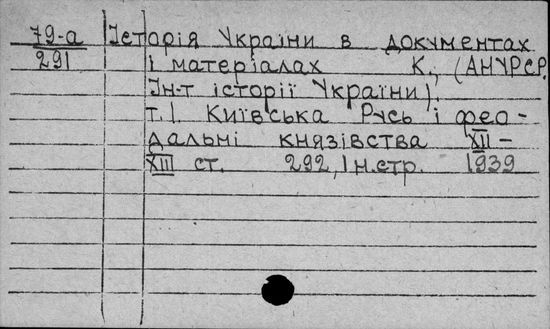 79-а Історія України в документах
291 і матеріалах К., (АНУРСР.
Ін-т історії України).
т.I. Київська Русь і фео-
дальні князівства XII-
XIII ст. 292, 1 н.стр. 1939